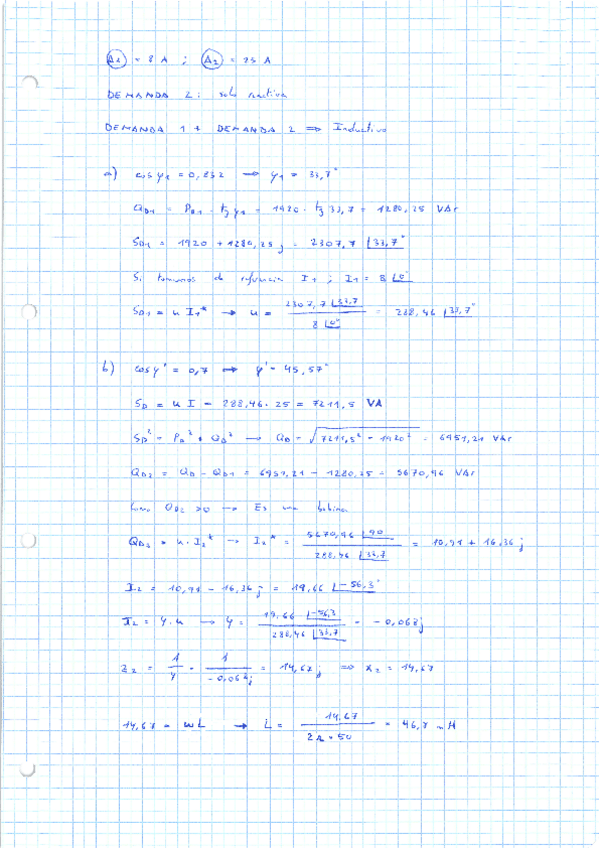 A1 = 8 A ; A2 = 25 A
DEMANDA 2: solo reactiva
DEMANDA 1 + DEMANDA 2 ⇒ Inductivo
a) cos φ1 = 0,832 → φ1 = 33,7°
QD1 = PD1 · tg φ1 = 1920 · tg 33,7 = 1280,25 VAr
SD1 = 1920 + 1280,25 j = 2307,7 ∠33,7°
Si tomamos de referencia I1 ; I1 = 8 ∠0°
SD1 = u I1* → u = 2307,7 ∠33,7 / 8 ∠0° = 288,46 ∠33,7°
b) cos φ' = 0,7 → φ' = 45,57°
SD = u I = 288,46 · 25 = 7211,5 VA
SD² = PD² + QD² → QD = √(7211,5² - 1920²) = 6951,21 VAr
QD2 = QD - QD1 = 6951,21 - 1280,25 = 5670,96 VAr
Como QD2 >0 → Es una bobina
QD2 = u · I2* → I2* = 5670,96 ∠90 / 288,46 ∠33,7 = 10,91 + 16,36 j
I2 = 10,91 - 16,36 j = 19,66 ∠-56,3°
I2 = Y · u → Y = 19,66 ∠-56,3 / 288,46 ∠33,7 = -0,068 j
Z2 = 1 / Y = 1 / -0,068 j = 14,67 j ⇒ X2 = 14,67
14,67 = ωL → L = 14,67 / 2π · 50 = 46,7 mH